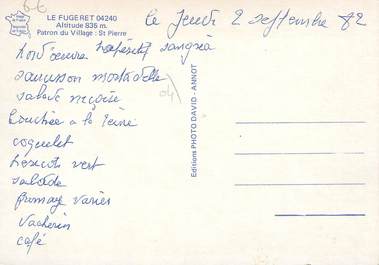 6€
LE FUGERET 04240
Altitude 836 m.
Patron du Village : St Pierre
le Jeudi 2 septembre 82
hors d'œuvre l'apéritif sangria
saucisson mortadelle
salade niçoise
bouchée a la reine
coquelet
haricots vert
salade
fromage variés
vacherin
café
04
Editions PHOTO DAVID - ANNOT